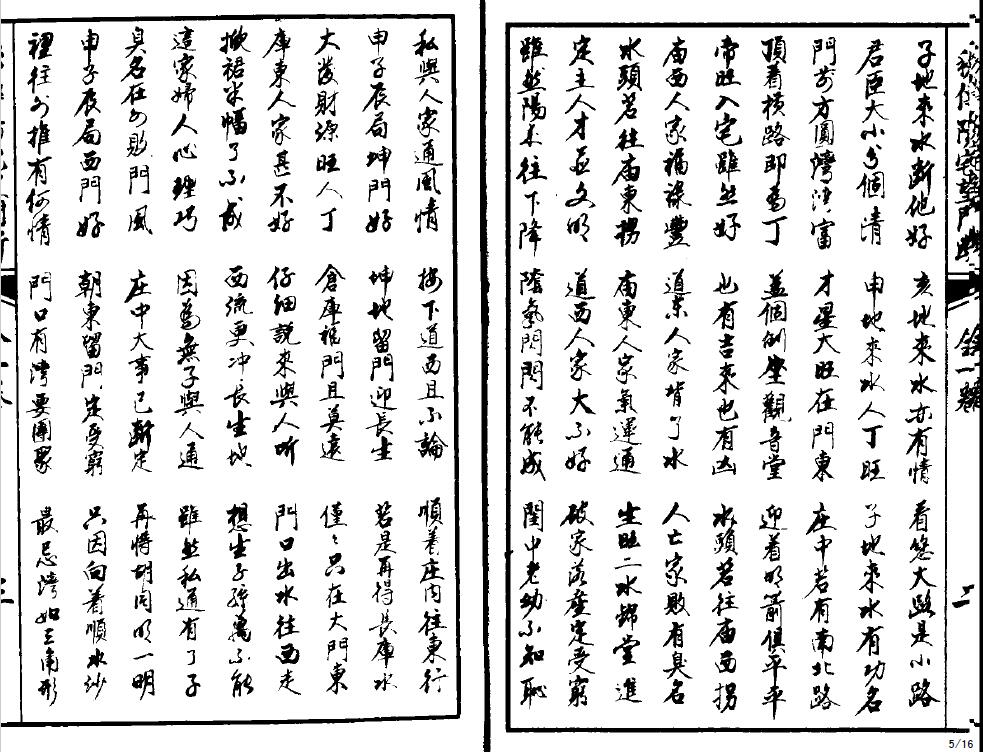 子地來水斷他好 亥地來水亦有情 看您大路是小路
君臣大小分個清 申地來水人丁旺 子地來水有功名
門前方圓灣 富 才星大旺在門東 庄中若有南北路
頂着橫路即為丁 蓋個倒坐觀音堂 迎着明箭俱平平
帝旺入宅雖然好 也有吉來也有凶 水頭若往庙西拐
庙西人家福祿豐 道东人家背了水 人亡家敗有臭名
水頭若往庙東拐 庙東人家氣運通 生旺二水歸堂進
定主人才並文明 道西人家大不好 破家蕩產定受窮
雖然陽 往下降 陰氣閃閃不能成 閨中老幼不知恥
私與人家通風情 按下道西且不論 順着庄内往東行
申子辰局坤門好 坤地留門迎長生 若是再得長庫水
大發財源旺人丁 倉庫 門且莫遠 僅々只在大門東
庫東人家甚不好 仔細說來與人听 門口出水往西走
掀裙半幅了不成 西流更冲長生地 想生子孫萬不能
這家婦人心理巧 因為無子與人通 雖然私通有了子
臭名在外敗門風 庄中大事已斷定 再將胡同明一明
申子辰局西門好 朝東留門定受窮 只因向着順水沙
裡往外推有何情 門口有灣要團聚 最忌灣如三角形
5/16